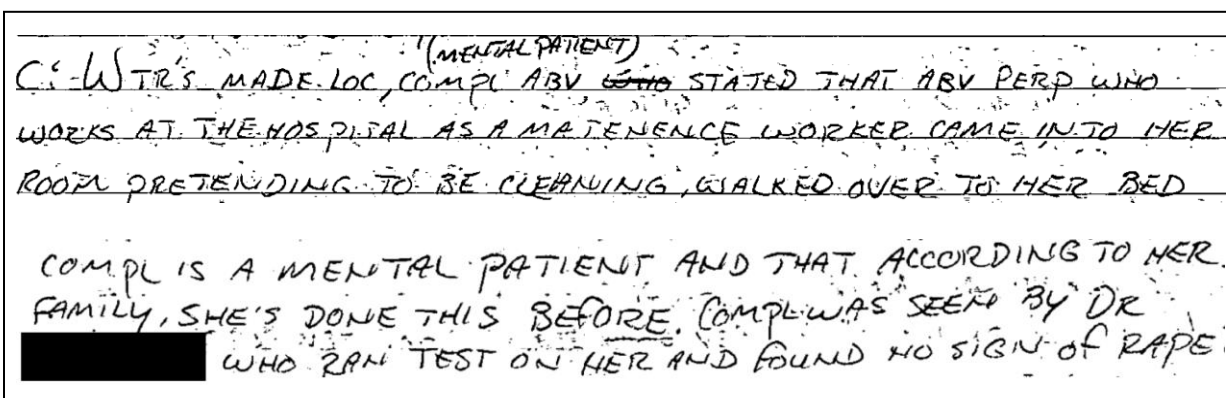 (MENTAL PATIENT)
C:-W TR'S MADE LOC, COMPL ABV WHO STATED THAT ABV PERP WHO
WORKS AT THE HOSPITAL AS A MATENENCE WORKER CAME INTO HER
ROOM PRETENDING TO BE CLEANING, WALKED OVER TO HER BED
COMPL IS A MENTAL PATIENT AND THAT ACCORDING TO HER
FAMILY, SHE'S DONE THIS BEFORE. COMPL WAS SEEN BY DR
WHO RAN TEST ON HER AND FOUND NO SIGN OF RAPE.